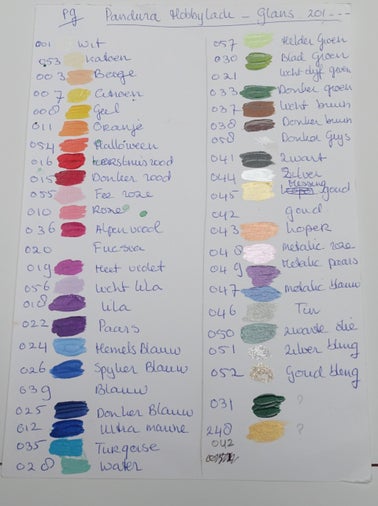 pg Pandura Hobbylade - Glans 201---
001 Wit
053 Katoen
003 Beige
007 Citroen
008 Geel
011 Oranje
054 Halloween
016 Kerstmis rood
015 Donker rood
055 Fee roze
010 Roze
036 Alpen rood
020 Fucsia
019 Heet violet
056 Licht lila
018 Lila
022 Paars
024 Hemels Blauw
026 Spyker Blauw
039 Blauw
025 Donker Blauw
012 Ultra marine
035 Turqoise
028 Water
057 Helder Groen
030 Blad Groen
021 Licht olijf groen
033 Donker groen
037 Licht bruin
038 Donker bruin
058 Donker Grijs
041 Zwart
044 Zilver
045 Messing goud
042 goud
043 Koper
048 Metalic roze
049 Metalic paars
047 Metalic blauw
046 Tin
050 Zwarte
051 Zilver bling
052 Goud bling
031 ?
248 ?
042